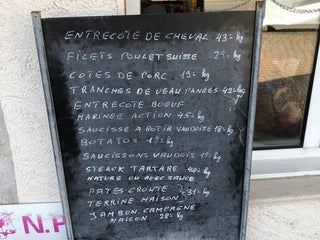 ENTRECOTE DE CHEVAL 43.- kg
FILETS POULET SUISSE 29.- kg
COTES DE PORC 19.- kg
TRANCHES DE VEAU PANEES 42.- kg
ENTRECOTE BOEUF
MARINEE ACTION 45.- kg
SAUCISSE A ROTIR VAUDOISE 18.- kg
BOTATOS 19.- kg
SAUCISSONS VAUDOIS 19.- kg
STEACK TARTARE 40.- kg
NATURE OU AVEC SAUCE
PATES CROUTE 31.- kg
TERRINE MAISON
JAMBON CAMPAGNE
MAISON 28.- kg
N.P